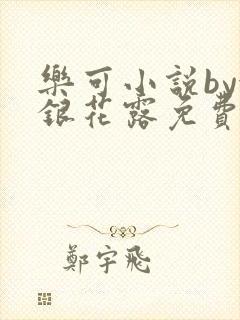 樂可小說by
銀花露免費
鄭宇飛